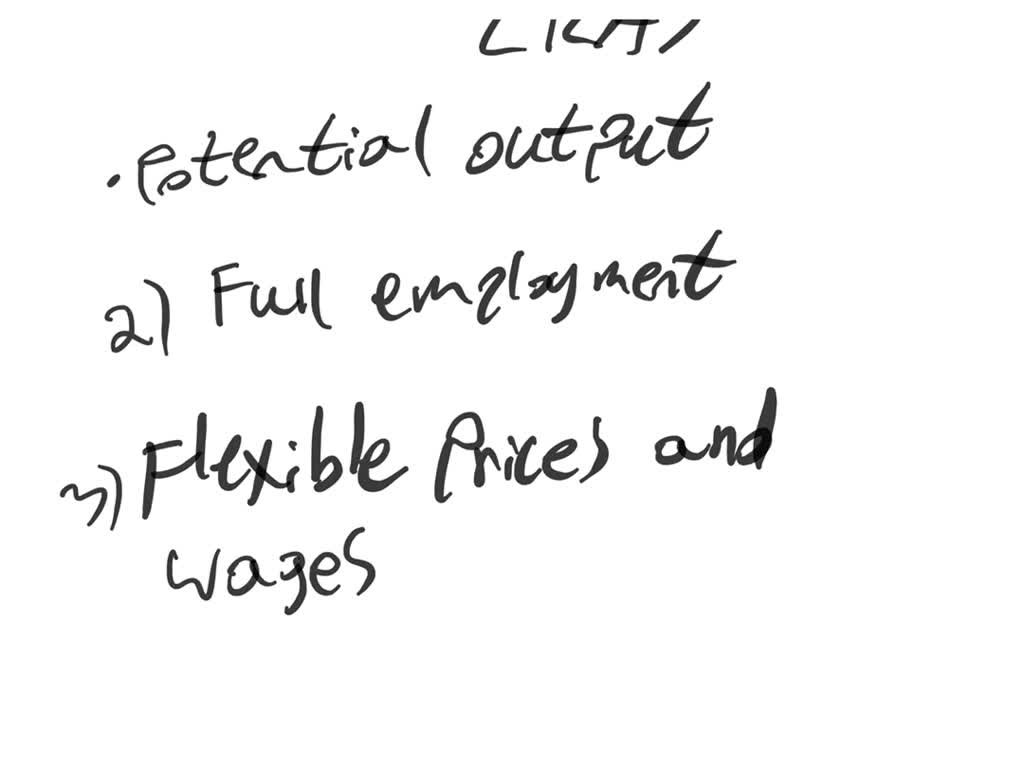 LRAS
. Potential output
2) Full employment
3) Flexible Prices and
wages